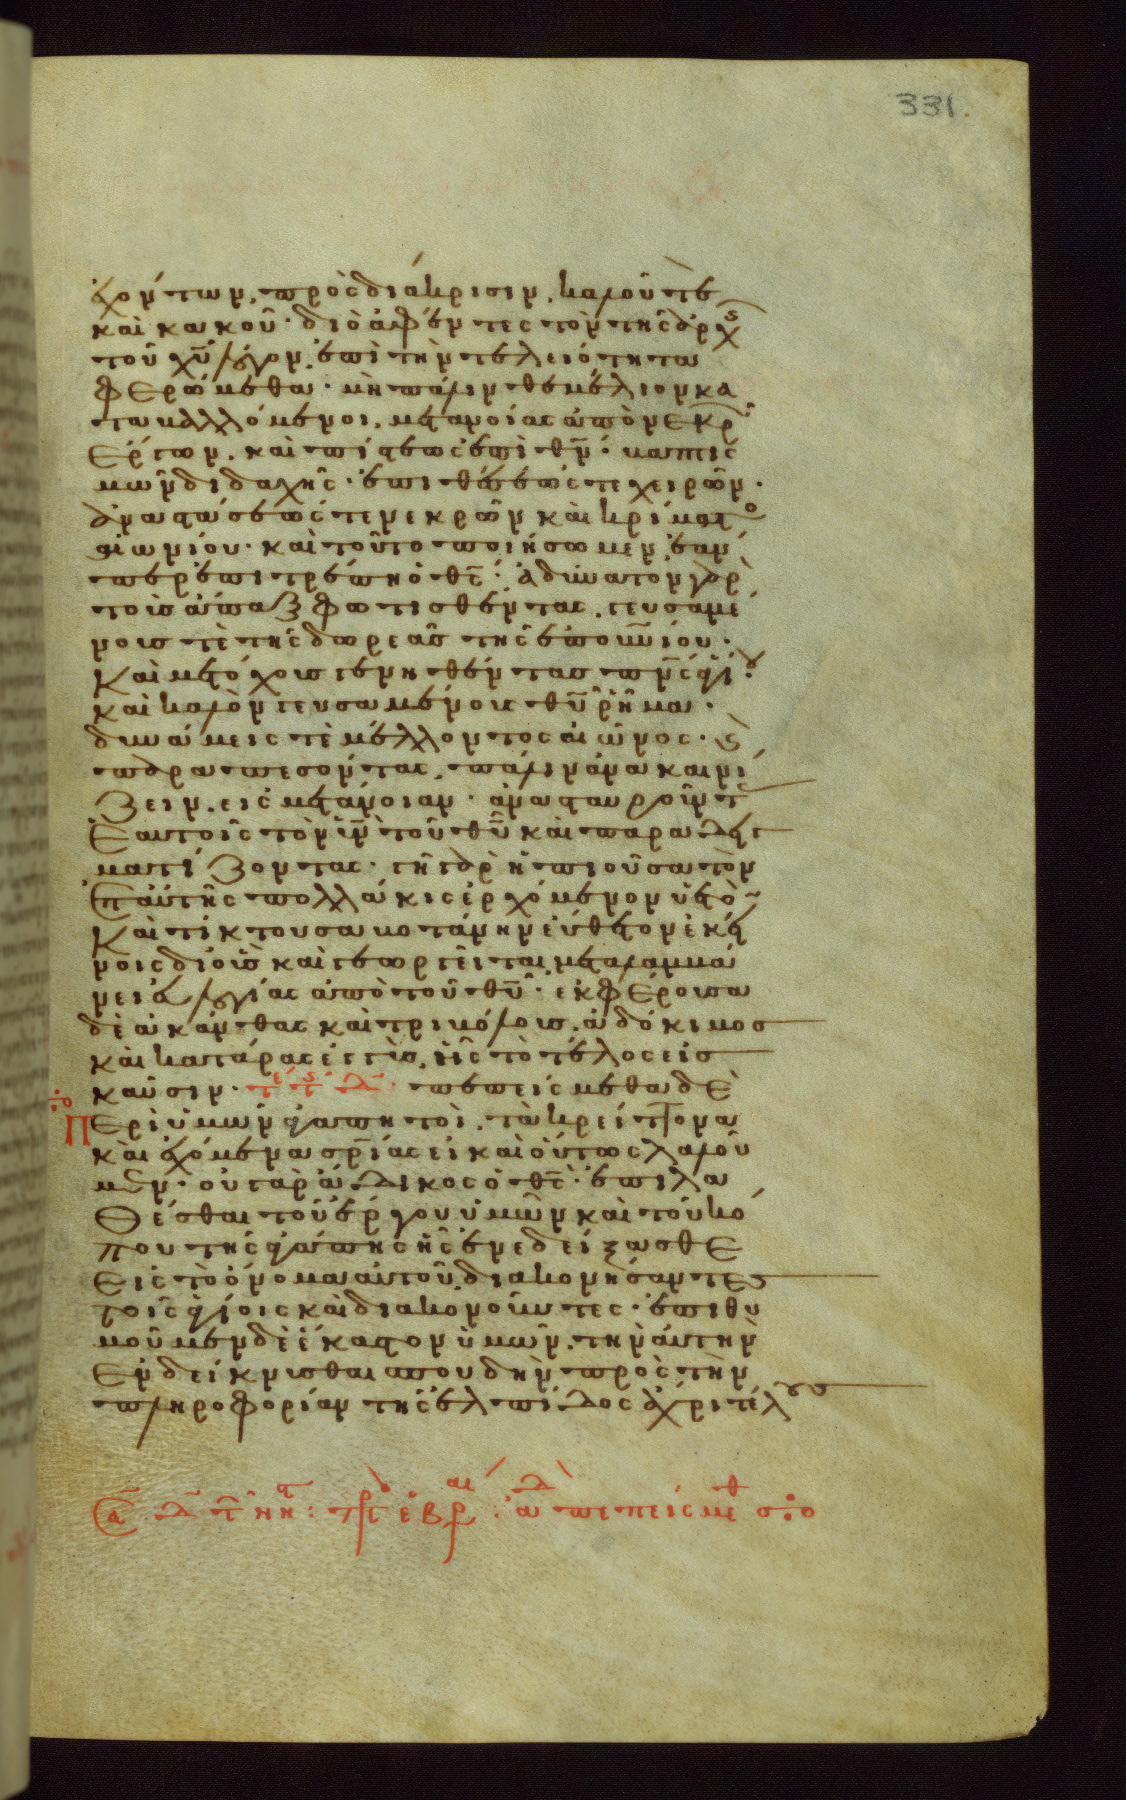 331.
χόντων πρὸς διάκρισιν καλοῦ τὲ
καὶ κακοῦ· διὸ ἀφέντες τὸν τῆς ἀρχ
τοῦ χῡ λόγον, ἐπὶ τὴν τελειότητα
φερώμεθα· μὴ πάλιν θεμέλιον κα
ταβαλλόμενοι, μετανοίας ἀπὸ νεκρ
έργων, καὶ πίστεως ἐπὶ θν̄· βαπτισ
μῶν διδαχῆς· ἐπιθέσεώς τε χειρῶν·
ἀναστάσεώς τε νεκρῶν καὶ κρίματο
αἰωνίου· καὶ τοῦτο ποιήσωμεν, ἐάν
περ ἐπιτρέπη ὁ θς̄· Ἀδύνατον γὰρ
τοὺς ἅπαξ φωτισθέντας, γευσαμέ
νους τὲ τῆς δωρεᾶς τῆς ἐπουνίου·
Καὶ μετόχους γενηθέντας πνς̄ ἁγί
καὶ καλὸν γευσαμένους θῡ ῥῆμα·
δυνάμεις τὲ μέλλοντος αἰῶνος· καὶ
παραπεσόντας, πάλιν ἀνακαινί
ζειν εἰς μετάνοιαν· ἀνασταυροῦντ
Ἑαυτοῖς τὸν ῡν τοῦ θῡ καὶ παραδειγ
ματίζοντας· γῆ γὰρ ἡ πιοῦσα τὸν
ἐπ αὐτῆς πολλάκις ἐρχόμενον ὑετὸ
Καὶ τίκτουσα βοτάνην εὔθετον ἐκεί
νοις δι οὓς καὶ γεωργεῖται, μεταλαμβά
νει εὐλογίας ἀπὸ τοῦ θῡ· ἐκφέρουσα
δὲ ἀκάνθας καὶ τριβόλους, ἀδόκιμος
καὶ κατάρας ἐγγὺς, ἧς τὸ τέλος εἰς
καῦσιν· πεπείσμεθα δὲ
Περὶ ὑμῶν ἀγαπητοὶ, τὰ κρείττονα
καὶ ἐχόμενα σρ̄ίας εἰ καὶ οὕτως λαλοῦ
μεν· οὐ γὰρ ἄδικος ὁ θς̄· ἐπιλα
θέσθαι τοῦ ἔργου ὑμῶν καὶ τοῦ κό
που τῆς ἀγάπης ἧς ἐνεδείξασθε
Εἰς τὸ ὄνομα αὐτοῦ, διακονήσαντες
τοῖς ἁγίοις καὶ διακονοῦντες· ἐπιθυ
μοῦμεν δὲ ἕκαστον ὑμῶν, τὴν αὐτὴν
Ἐνδείκνυσθαι σπουδὴν πρὸς τὴν
πληροφορίαν τῆς ἐλπίδος ἄχρι τέλους